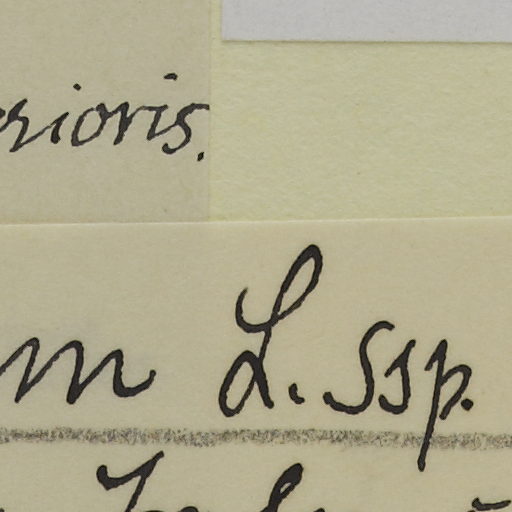 erioris.
m L. ssp.